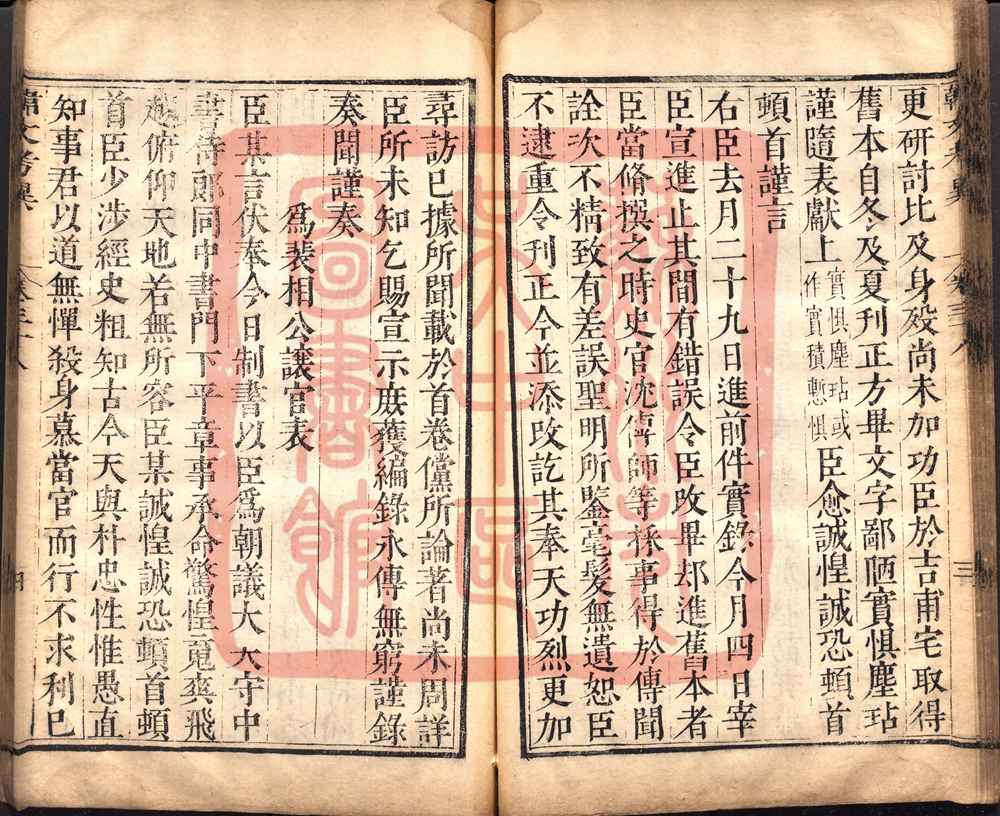 更研討比及身歿尚未加功臣於吉甫宅取得
舊本自冬及夏刊正方畢文字鄙陋實惧塵玷
謹隨表獻上實惧塵玷或作實積慙惧臣愈誠惶誠恐頓首
頓首謹言
右臣去月二十九日進前件實錄今月四日宰
臣宣進止其間有錯誤令臣改畢却進舊本者
臣當脩撰之時史官沈傳師等採事得於傳聞
詮次不精致有差誤聖明所鑒毫髮無遺恕臣
不逮重令刊正今並添改訖其奉天功烈更加
尋訪已據所聞載於首卷儻所論著尚未周詳
臣所未知乞賜宣示庶獲編錄永傳無窮謹錄
奏聞謹奏
爲裴相公讓官表
臣某言伏奉今日制書以臣爲朝議大夫守中
書侍郎同中書門下平章事承命驚惶䰟爽飛
越俯仰天地若無所容臣某誠惶誠恐頓首頓
首臣少涉經史粗知古今天與朴忠性惟愚直
知事君以道無憚殺身慕當官而行不求利己
韓文考異
卷三十八
四
韓文考異
卷三十八
三
圖書館